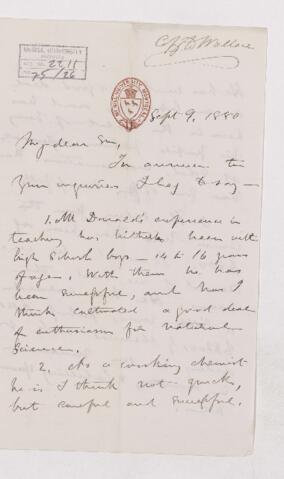 Wallace
McGILL UNIVERSITY
McGILL UNIVERSITY MONTREAL
Sept 9, 1880
My dear Sir,
In answer to
your inquiries I beg to say –
1. Mr Donald's experience in
teaching has hitherto been with
high School boys – 14 to 16 years
of age. With them he has
been successful, and has I
think cultivated a good deal
of enthusiasm for Natural
Science.
2. As a working chemist
he is I think not quick,
but careful and successful.